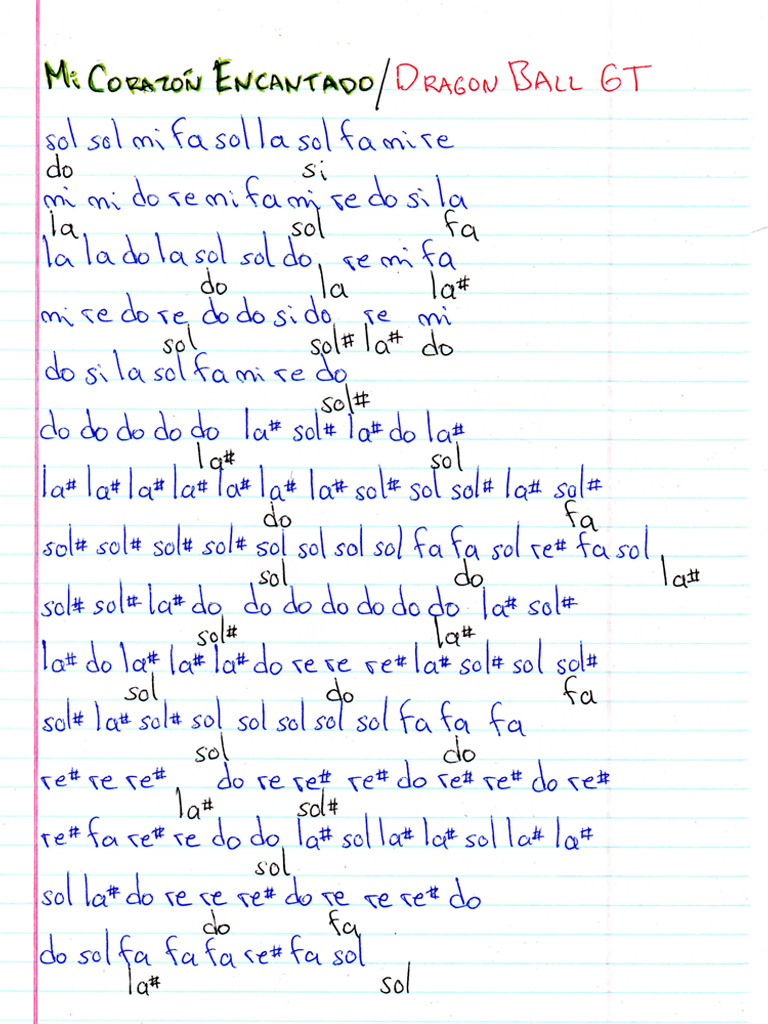 Mi CORAZÓN ENCANTADO/DRAGON BALL GT
sol sol mi fa sol la sol fa mi re
do si
mi mi do re mi fa mi re do si la
la sol fa
la la do la sol sol do re mi fa
do la la#
mi re do re do do si do re mi
sol sol# la# do
do si la sol fa mi re do
sol#
do do do do do la# sol# la# do la#
la# sol
la# la# la# la# la# la# la# sol# sol sol# la# sol#
do fa
sol# sol# sol# sol# sol sol sol sol fa fa sol re# fa sol
sol do la#
sol# sol# la# do do do do do do do la# sol#
sol# la#
la# do la# la# la# do re re re# la# sol# sol sol#
sol do fa
sol# la# sol# sol sol sol sol sol fa fa fa
sol do
re# re re# do re re# re# do re# re# do re#
la# sol#
re# fa re# re do do la# sol la# la# sol la# la#
sol
sol la# do re re re# do re re re# do
do fa
do sol fa fa fa re# fa sol
la# sol